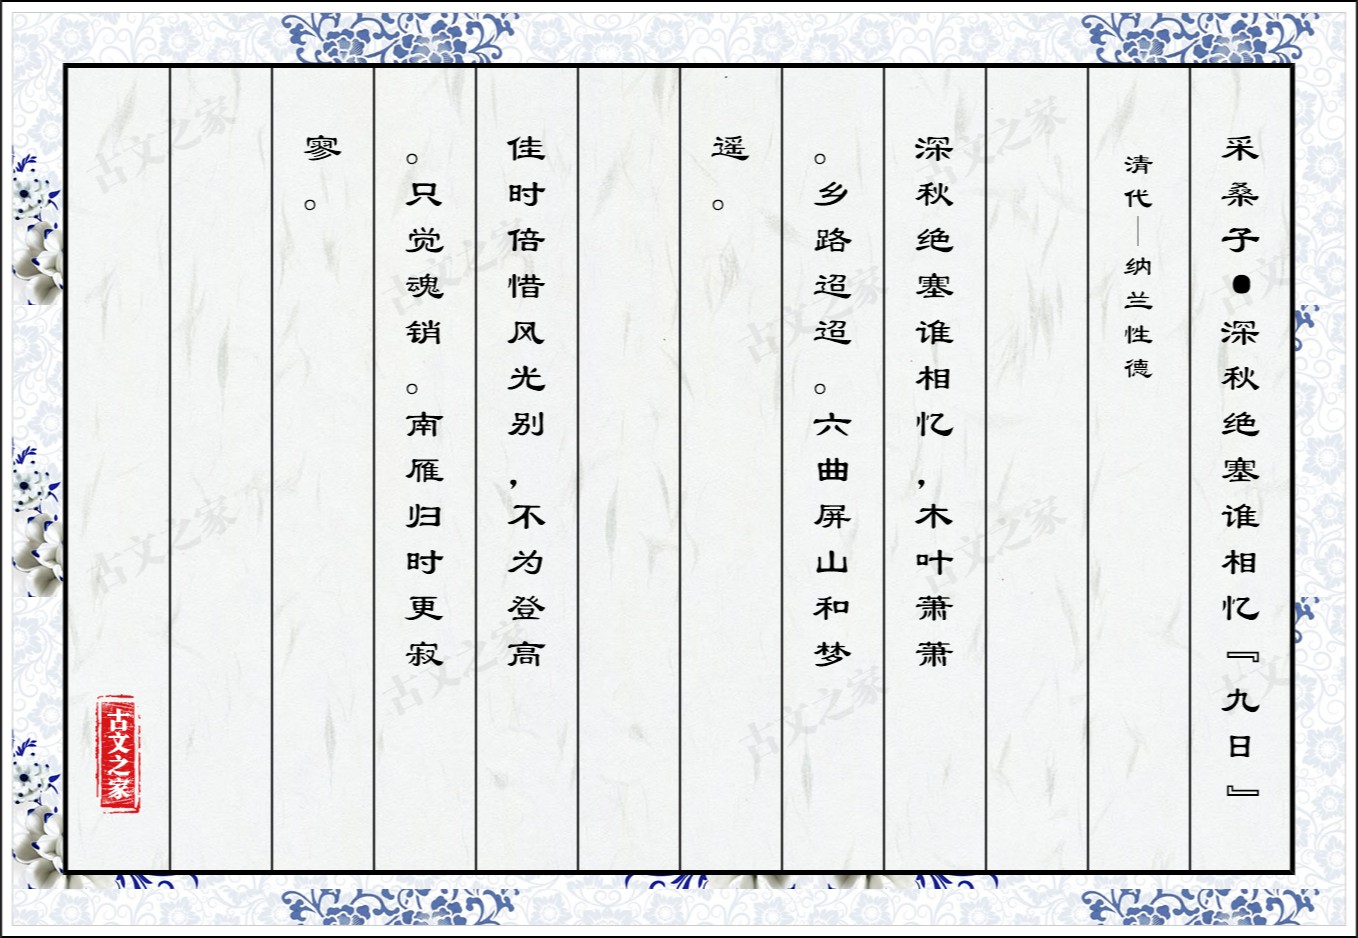 采桑子●深秋绝塞谁相忆『九日』
清代—纳兰性德
深秋绝塞谁相忆，木叶萧萧
。乡路迢迢。六曲屏山和梦
遥。
佳时倍惜风光别，不为登高
。只觉魂销。南雁归时更寂
寥。
古文之家